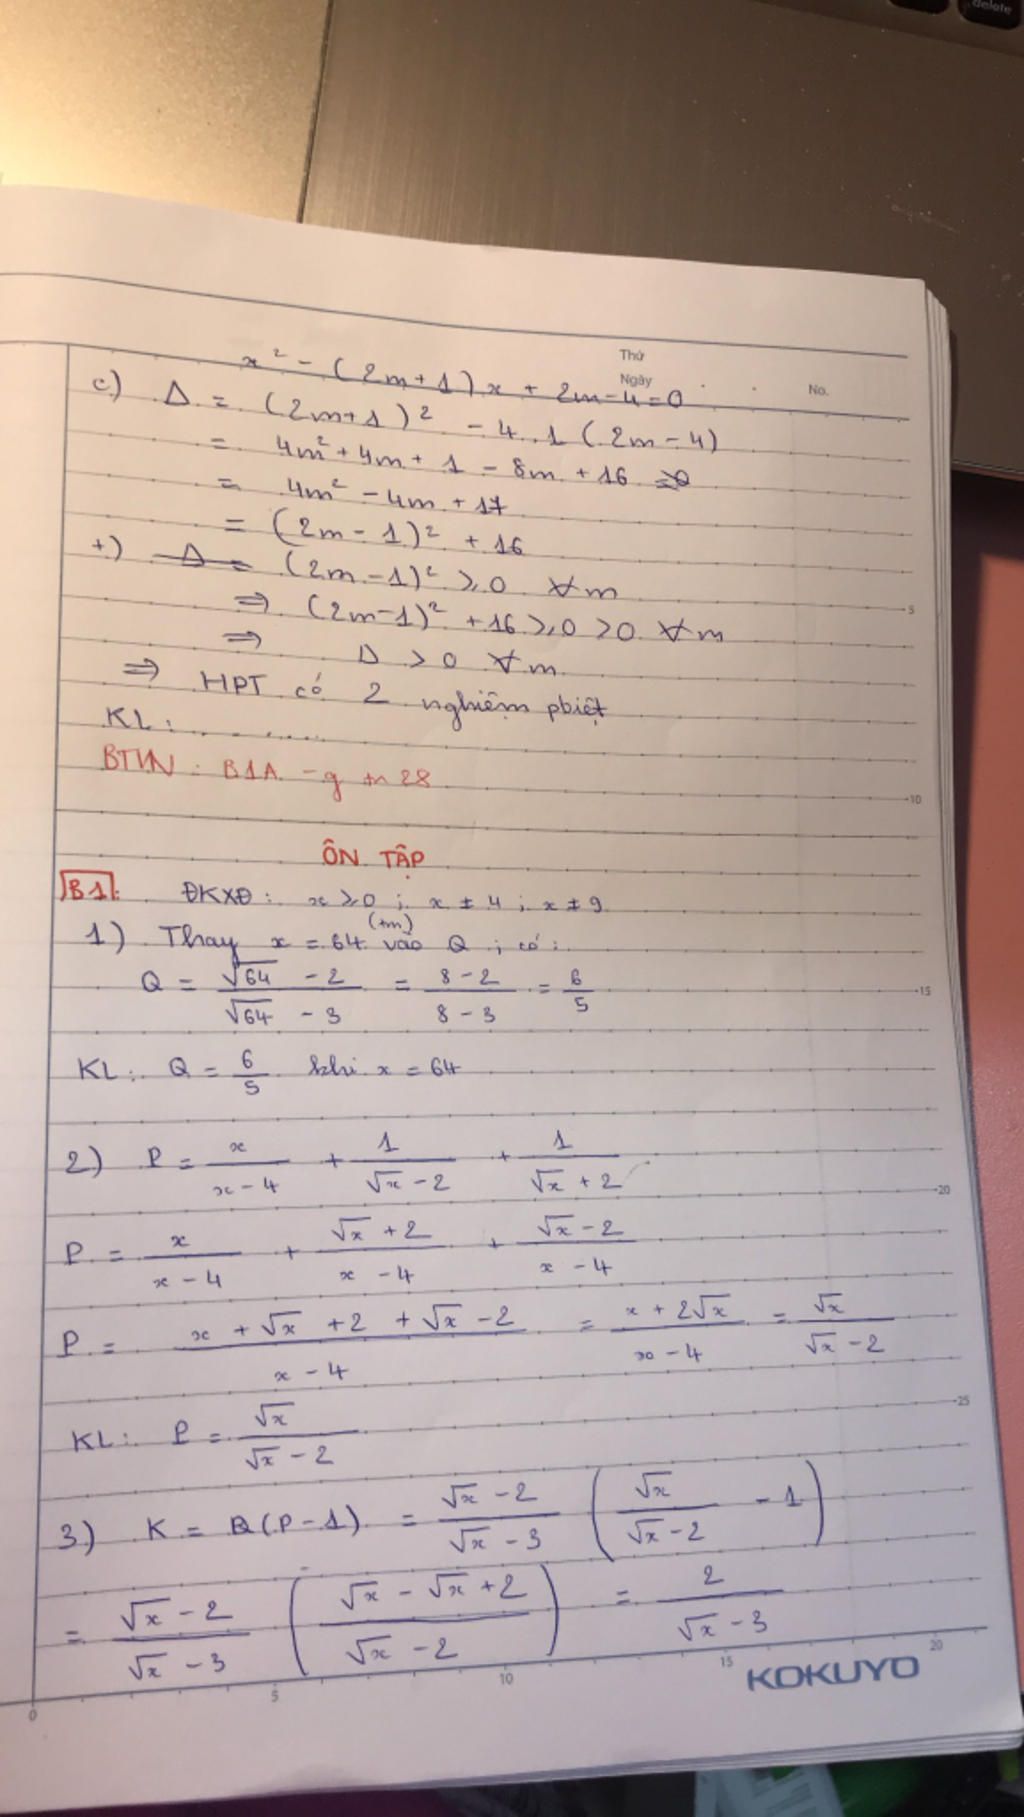 delete
Thứ
Ngày
No.
x² - (2m+1)x + 2m-4=0
c) Δ = (2m+1)² - 4.1(2m-4)
= 4m² + 4m + 1 - 8m + 16
= 4m² - 4m + 17
= (2m-1)² + 16
+) Δ = (2m-1)² ⩾ 0 ∀m
⇒ (2m-1)² + 16 ⩾ 0 > 0 ∀m
⇒ Δ > 0 ∀m
⇒ HPT có 2 nghiệm pbiệt
KL: .........
BTVN: B1A - g tr 28
ÔN TẬP
B1: ĐKXĐ: x ⩾ 0 ; x ≠ 4 ; x ≠ 9
1) Thay x = 64 (tm) vào Q ; có:
Q = (√64 - 2)/(√64 - 3) = (8-2)/(8-3) = 6/5
KL: Q = 6/5 khi x = 64
2) P = x/(x-4) + 1/(√x-2) + 1/(√x+2)
P = x/(x-4) + (√x+2)/(x-4) + (√x-2)/(x-4)
P = (x + √x + 2 + √x - 2)/(x-4) = (x+2√x)/(x-4) = √x/(√x-2)
KL: P = √x/(√x-2)
3) K = Q(P-1) = (√x-2)/(√x-3) (√x/(√x-2) - 1)
= (√x-2)/(√x-3) ((√x-√x+2)/(√x-2)) = 2/(√x-3)
KOKUYO